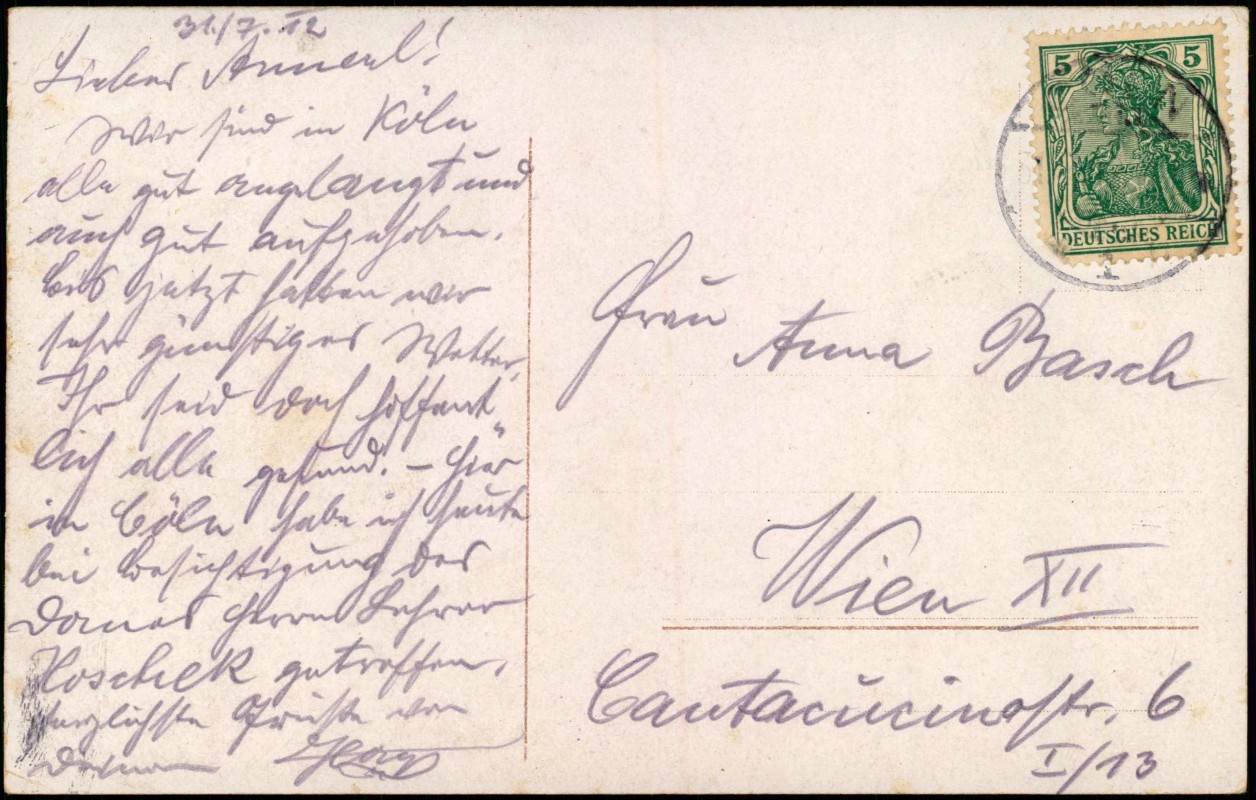 31./7. 12
Liebes Annerl!
Wir sind in Köln
alle gut angelangt und
auch gut aufgehoben.
Bis jetzt hatten wir
sehr günstiges Wetter.
Ihr seid doch hoffent„
lich alle gesund. – Hier
in Cöln habe ich heute
bei Besichtigung des
Domes Herrn Lehrer
Koschek getroffen.
Herzlichste Grüße von
deinem Georg
5 5
DEUTSCHES REICH
Frau Anna Basch
Wien XII
Cantacucinostr. 6
I/13